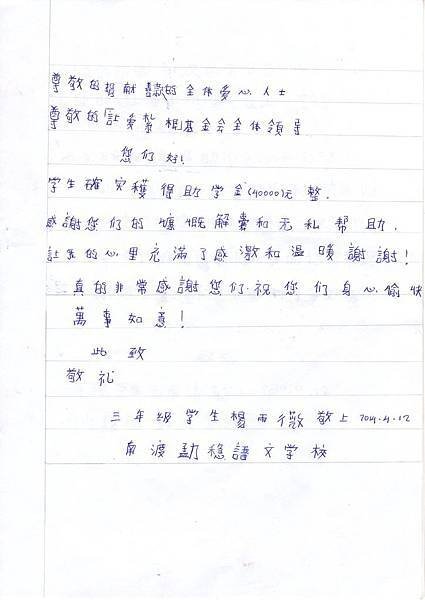 尊敬的捐献款的全体爱心人士
尊敬的「让爱紮根」基金会全体领导
您们好!
学生確实獲得助学金(40000)元整.
感謝您们的慷慨解囊和无私帮助.
让我的心里充滿了感激和温暖謝謝!
真的非常感謝您们.祝您们身心愉快
萬事如意!
此致
敬礼
三年級学生楊雨薇敬上 2014.4.12
南渡勐稳語文学校